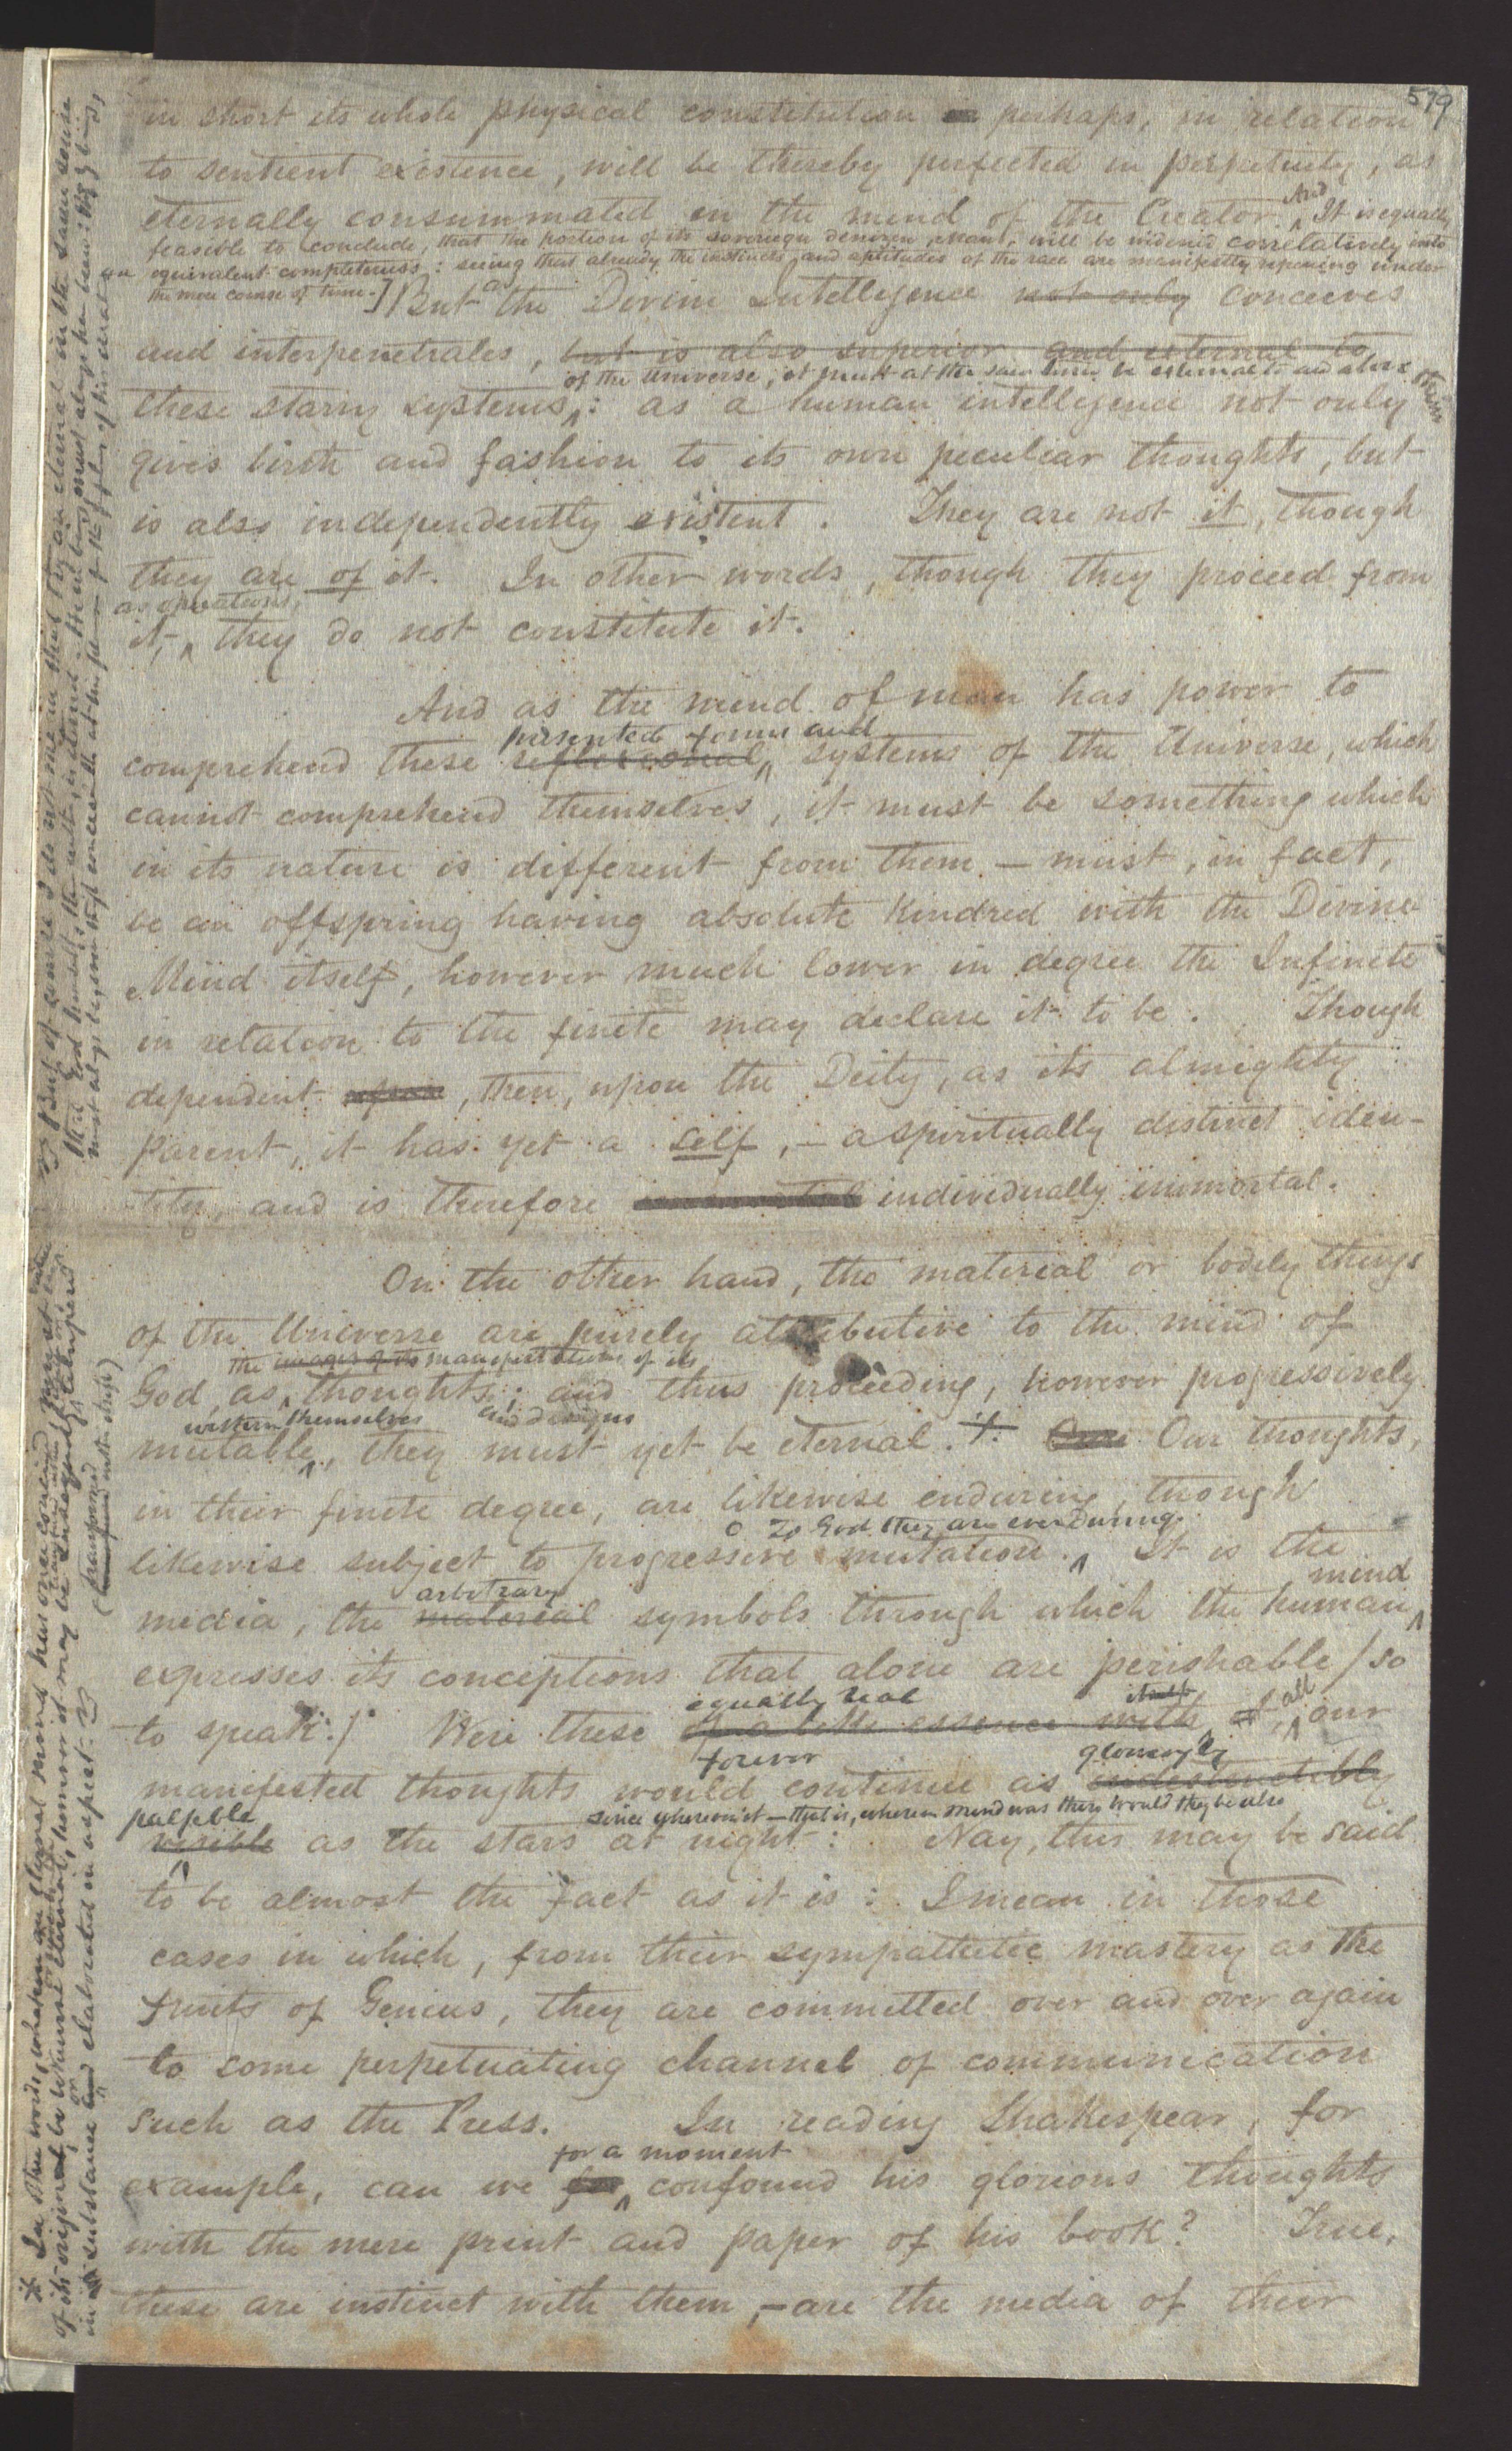 579
in short its whole physical constitution perhaps, in relation
to sentient existence, will be thereby perfected in perpetuity, as
eternally consummated in the mind of the Creator. And It is equally
feasible to conclude, that the portion of its sovereign denizen, Man, will be widened correlatively into
an equivalent completeness: seeing that already the instincts and aptitudes of the race are manifestly ripening under
the mere course of time.] But as the Divine Intelligence not only conceives
and interpenetrates, but is also superior and external to
of the Universe, it must at the same time be external to and above them
these starry systems: as a human intelligence not only
gives birth and fashion to its own peculiar thoughts, but
is also independently existent. They are not it, though
they are of it. In other words, though they proceed from
as operations,
it, they do not constitute it.
And as the mind of man has power to
presented forms and
comprehend these systems of the Universe, which
cannot comprehend themselves, it must be something which
in its nature is different from them — must, in fact,
be an offspring having absolute kindred with the Divine
Mind itself, however much lower in degree the Infinite
in relation to the finite may declare it to be. Though
dependent upon, then, upon the Deity, as its almighty
Parent, it has yet a self, – a spiritually distinct iden-
tity, and is therefore immortal individually immortal.
On the other hand, the material or bodily things
of the Universe are purely attributive to the mind of
the images of its manifestations of its
God, as thoughts: and thus proceeding, however progressively
within themselves and designs
mutable, they must yet be eternal. * Our Our thoughts,
in their finite degree, are likewise enduring, though
To God they are everduring.
likewise subject to progressive mutation. It is the
arbitrary mind
media, the material symbols through which the human
expresses its conceptions that alone are perishable (so
equally real itself all
to speak.) Were these of a like essence with it, our
forever glowingly
manifested thoughts would continue as indestructibly
palpable since whereon it — that is, wherein mind was there would they be also
visible as the stars at night: Nay, this may be said
to be almost the fact as it is: I mean in those
cases in which, from their sympathetic mastery as the
fruits of Genius, they are committed over and over again
to some perpetuating channel of communication
such as the Press. In reading Shakespear, for
for a moment
example, can we for confound his glorious thoughts
with the mere print and paper of his book? True,
these are instinct with them, – are the media of their
* In other words, whatever an Eternal mind has once conceived must
of its origin be eternal, however it may be
in substance and elaborated in aspect.
But of course I do not mean that they are eternal in the same sense
that God himself is eternal: must always have been: